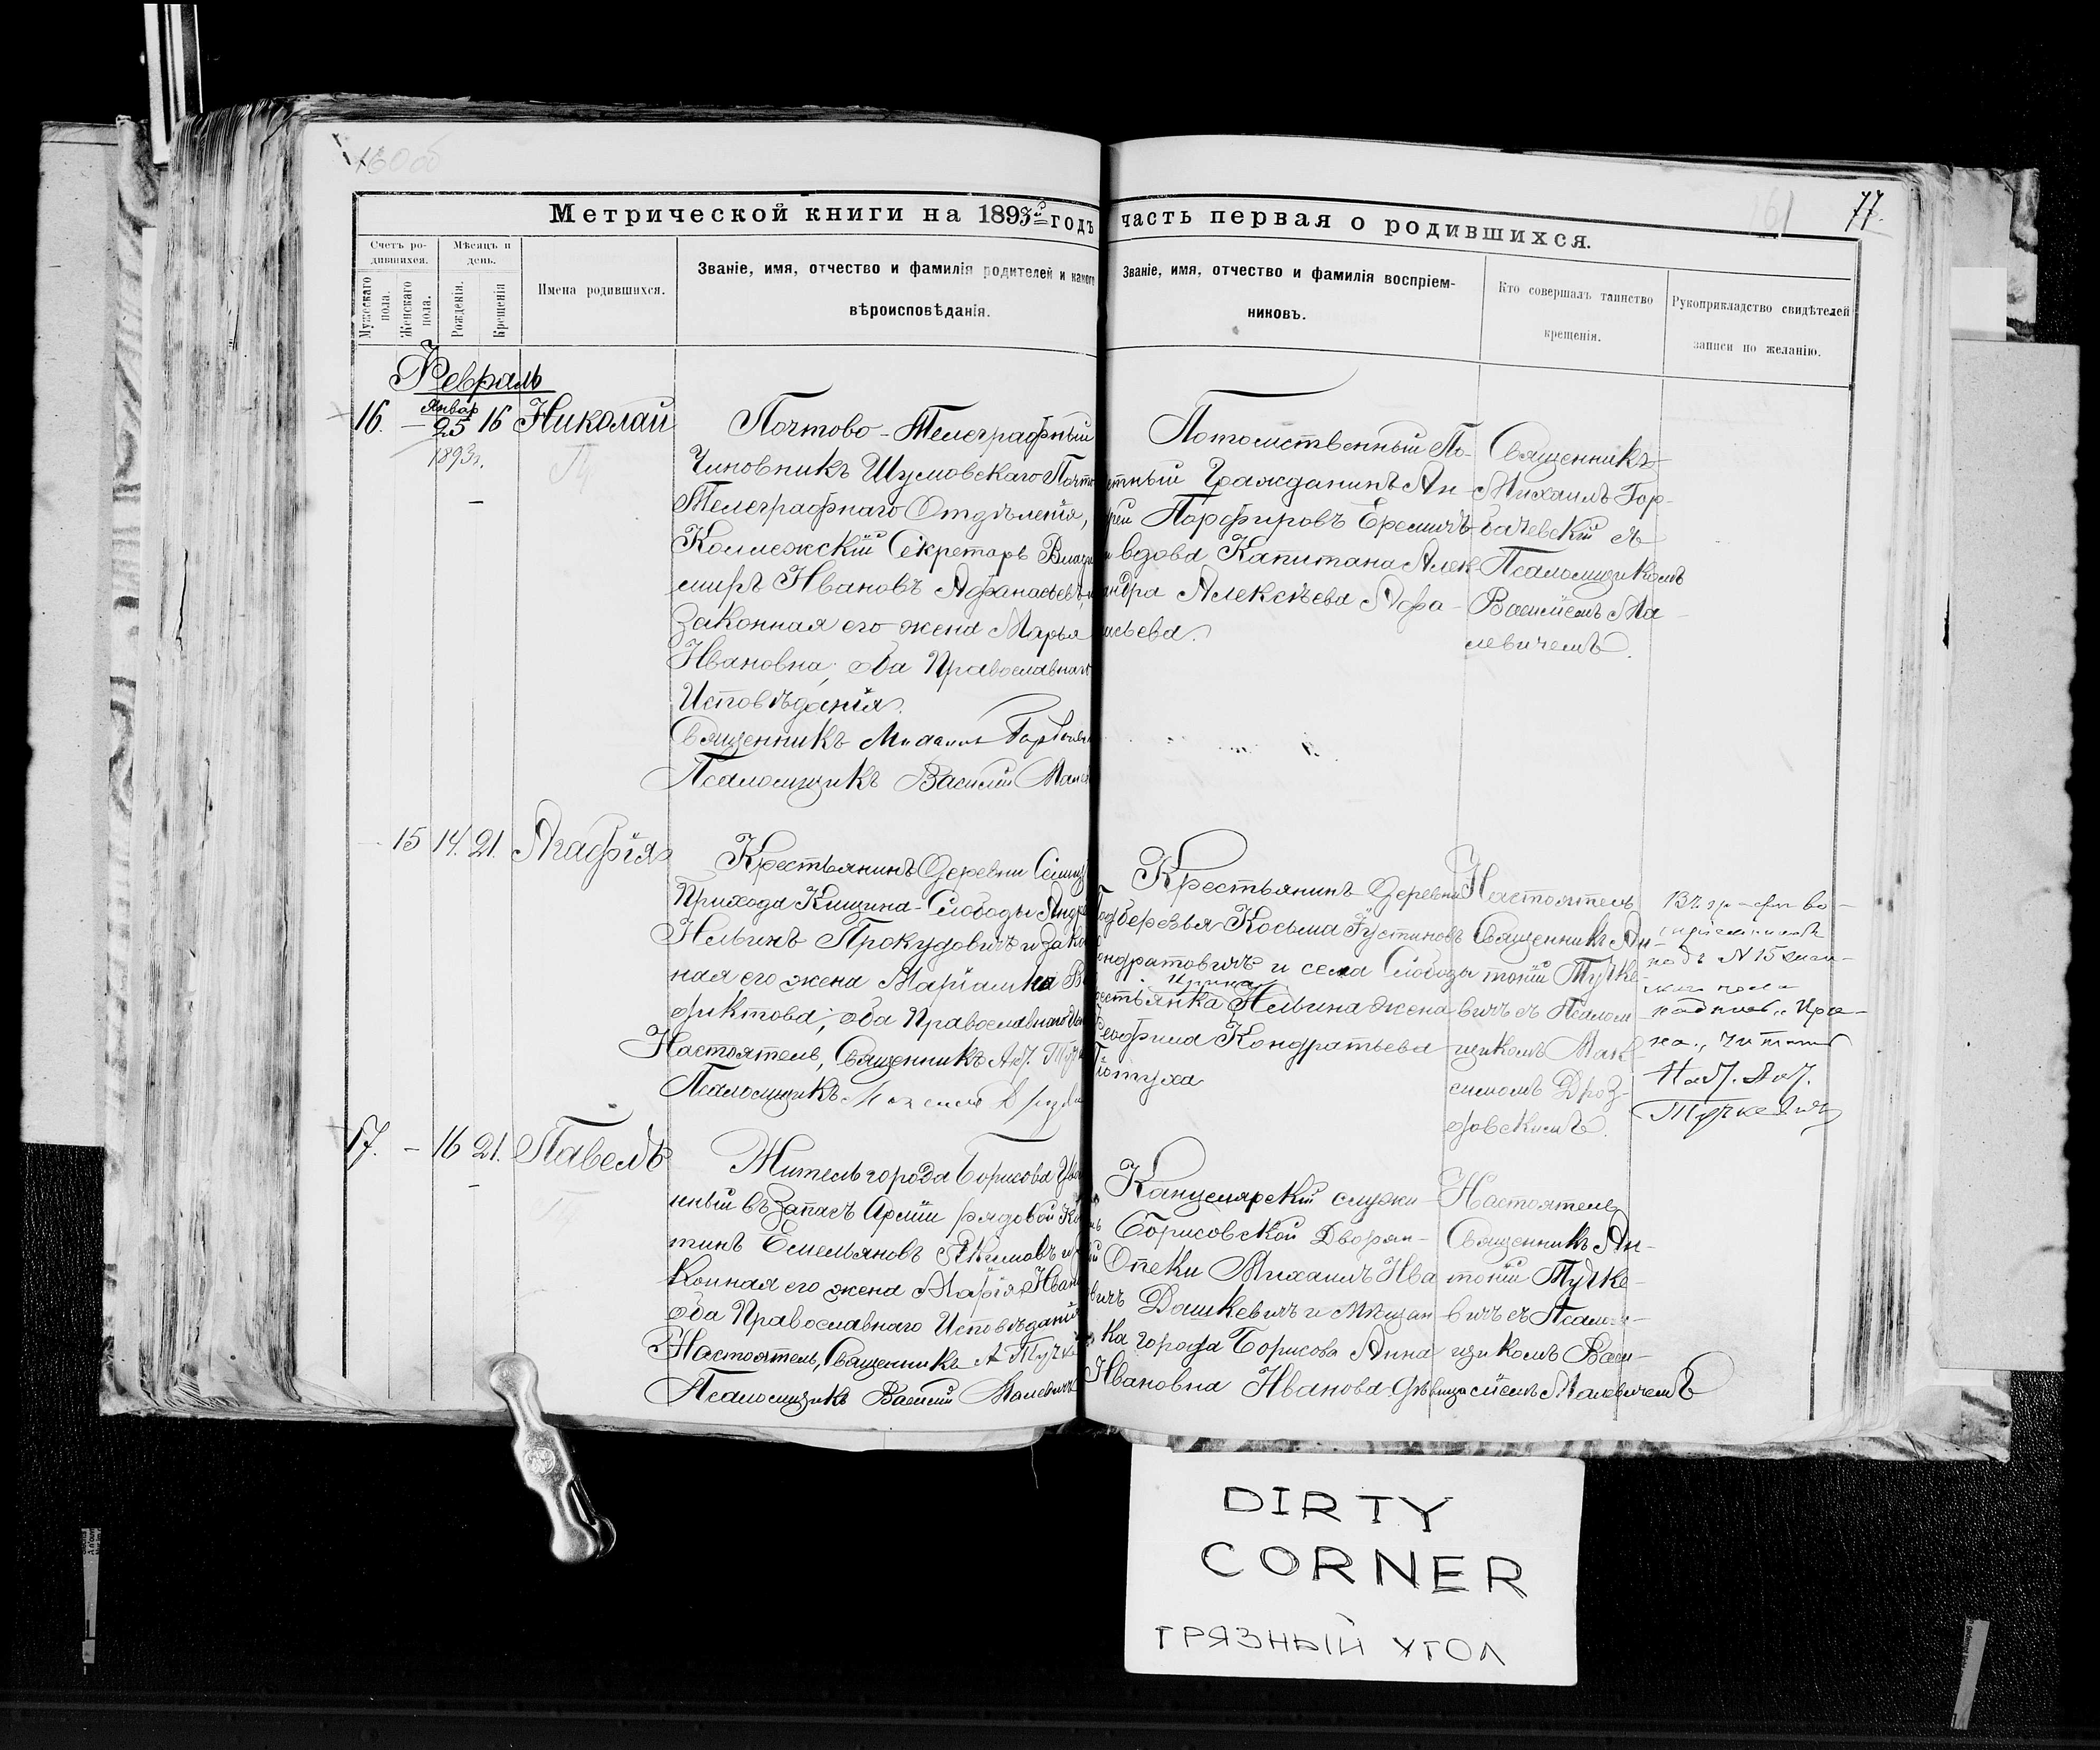 160 об
161
77.
Метрической книги на 1893й годъ часть первая о родившихся.
Счетъ ро-
дившихся.
Мужескаго пола.
Женскаго пола.
Мѣсяцъ и
день.
Рожденія.
Крещенія
Имена родившихся.
Званіе, имя, отчество и фамилія родителей и какого
вѣроисповѣданія.
Званіе, имя, отчество и фамилія воспріем-
никовъ.
Кто совершалъ таинство
крещенія.
Рукоприкладство свидѣтелей
записи по желанію.
Февраль
16. — Январ 25 1893г. 16 Николай
Почтово-Телеграфный
Чиновникъ Шумовскаго Почто
Телеграфнаго Отдѣленія,
Коллежскій Секретарь Влади
миръ Ивановъ Афанасьевъ, и
законная его жена Марья
Ивановна, оба Православнаго
Исповѣданія.
Священникъ Михаилъ
Псаломщикъ Василий
Потомственный По-
етный Гражданинъ Ан-
рей Порфировъ Еремичъ
и вдова Капитана Алек
андра Алексѣева Афа-
асьева.
Священникъ
Михаилъ Гор-
бачевскій съ
Псаломщикомъ
Василіемъ Ма-
левичемъ.
— 15 14. 21. Агафія
Крестьянинъ Деревни
Прихода Кищина-Слободы Андре
Ильинъ Прокудовичъ и зако
ная его жена Маріамна
фиктова; оба Православнаго
Настоятель, Священникъ Ант.
Псаломщикъ
Крестьянинъ Деревни
одберезья Косьма Іустиновъ
ондратовичъ и села Слободы
Ирина
естьянка Ильина жена
Феофила Кондратьева
Настоятель
Священникъ Ан-
тоній Тучке-
вичъ съ Псалом
щикомъ Мак-
симомъ Дроз-
довскимъ.
Въ гр-фи во-
спріемниковъ
подъ N 15
надпись „Ири-
на„ читать
Наст. Ант.
Тучкевичъ
17. — 16 21. Павелъ
Житель города Борисова
нный въ Запасъ Арміи рядовой
тинъ Емельяновъ Якимовъ и
конная его жена Марія Иван
оба Православнаго Исповѣданія
Настоятель, Священникъ А Тучке
Псаломщикъ Василий Малевичъ
Канцелярскій служи-
ль Борисовской Дворян-
й Опеки Михаилъ Ива
вичъ Дашкевичъ и Мѣщан
ка города Борисова Анна
Ивановна Иванова дѣвица
Настоятель
Священникъ Ан-
тоній Тучке-
вичъ съ Псалом-
щикомъ Васи-
ліемъ Малевичемъ
DIRTY
CORNER
ГРЯЗНЫЙ УГОЛ